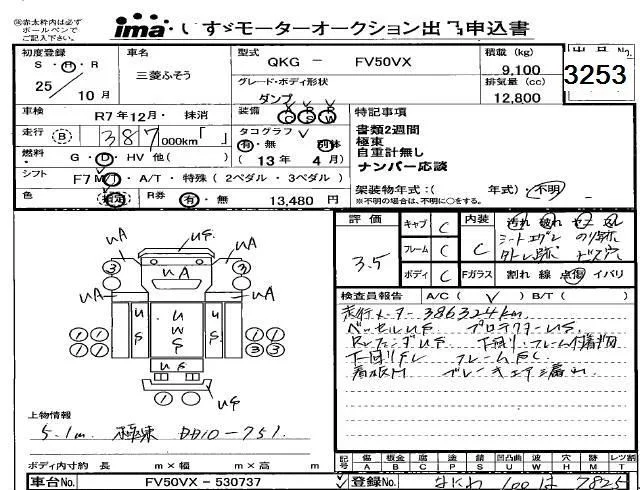 ※赤太枠内は必ず
ボールペンで
ご記入下さい。
ima いすゞモーターオークション出品申込書
初度登録
S・H・R
25
10 月
車名
三菱ふそう
型式
QKG - FV50VX
グレード・ボディ形状
ダンプ
積載 (kg)
9,100
排気量 (cc)
12,800
3253
車検
R7 年 12月・ 抹消
装備
走行
B
387 000km「 」
タコグラフ
有・無 別体
( 13 年 4 月)
燃料
G・D・HV 他( )
シフト
F7 M/T・A/T・特殊(2ペダル・3ペダル)
色
R券
有・無 13,480 円
特記事項
書類2週間
極東
自重計無し
ナンバー応談
架装物年式:( 年式)・不明
※不明の場合は、不明に○をする。
評価
3.5
キャブ C
フレーム C
ボディ C
内装
C
汚れ 破れ
シートエグレ のり跡
タトレ跡 ビス穴
Fガラス 割れ 線 点傷 イバリ
検査員報告 A/C( V ) B/T( )
走行メーター386324km
ベッセルUS プロテクターUS
下回り・フレーム付着物
下回りFL フレームFC
ブレーキエアー漏れ
UA
US
UA
3
3
UA
UA
UA
US
UWS
US
US
US
1 1
1 1
1 1
3 3
上物情報
5.1m 極東 DD10-751
ボディ内寸約 長 m×幅 m×高 m
車台No. FV50VX - 530737
記号
傷 板金 腐 塗 錆 凹凸曲 波 穴 跡 レツ割
A B C P S U W H M T
登録No. なにわ 100 は 7825